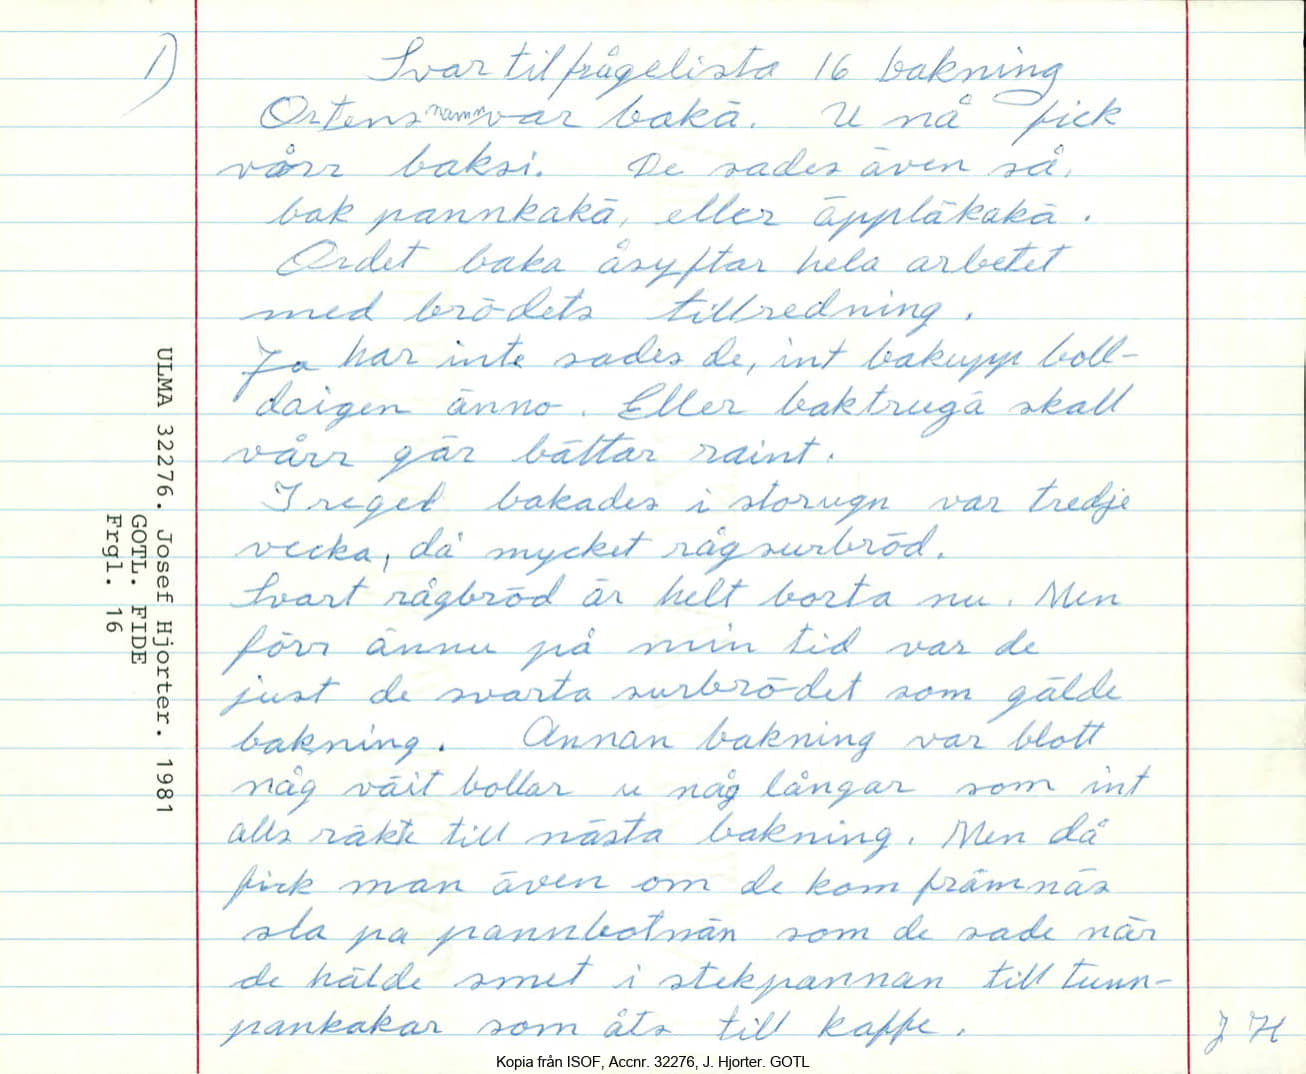 1)
Svar til frågelista 16 bakning
Ortens namn var bakä. U nå fick
vårr baksi. De sades även så,
bak pannkakä, eller äppläkakä.
Ordet baka åsyftar hela arbetet
med brödets tillredning.
Ja har inte sades de, int bakupp boll-
daigen änno. Eller baktrugä skall
vårr gär bättar raint.
I regel bakades i storugn var tredje
vecka, då mycket rågsurbröd.
Svart rågbröd är helt borta nu. Men
förr ännu på min tid var de
just de svarta surbrödet som gälde
bakning. Annan bakning var blott
någ väit bollar u någ långar som int
alls räkte till nästa bakning. Men då
fick man även om de kom främnäs
sla pa pannbotnän som de sade när
de hälde smet i stekpannan till tunn-
pankakar som åts till kaffe.
J H
ULMA 32276. Josef Hjorter. 1981
GOTL. FIDE
Frgl. 16
Kopia från ISOF, Accnr. 32276, J. Hjorter. GOTL